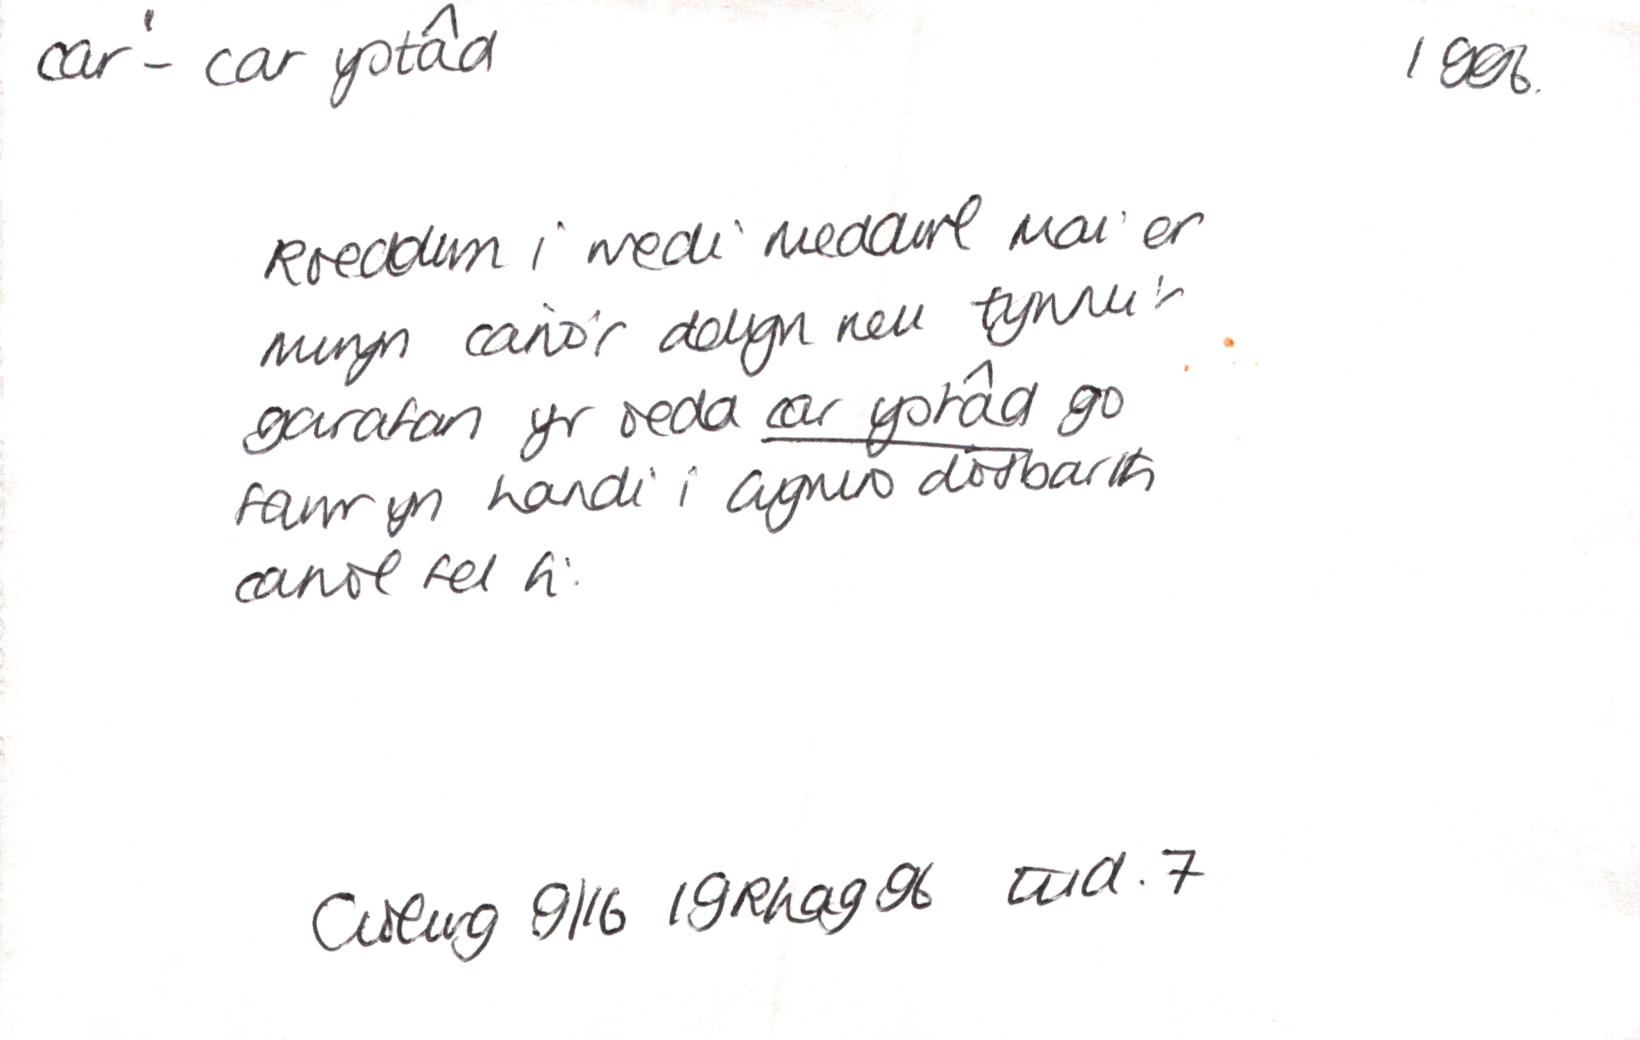 car¹ - car ystâd 1996.
Roeddwn i wedi meddwl mai er
mwyn cario'r delyn neu tynnu'r
garafan yr oedd car ystâd go
fawr yn handi i Gymro dosbarth
canol fel fi.
Golwg 9/16 19 Rhag 96 tud. 7